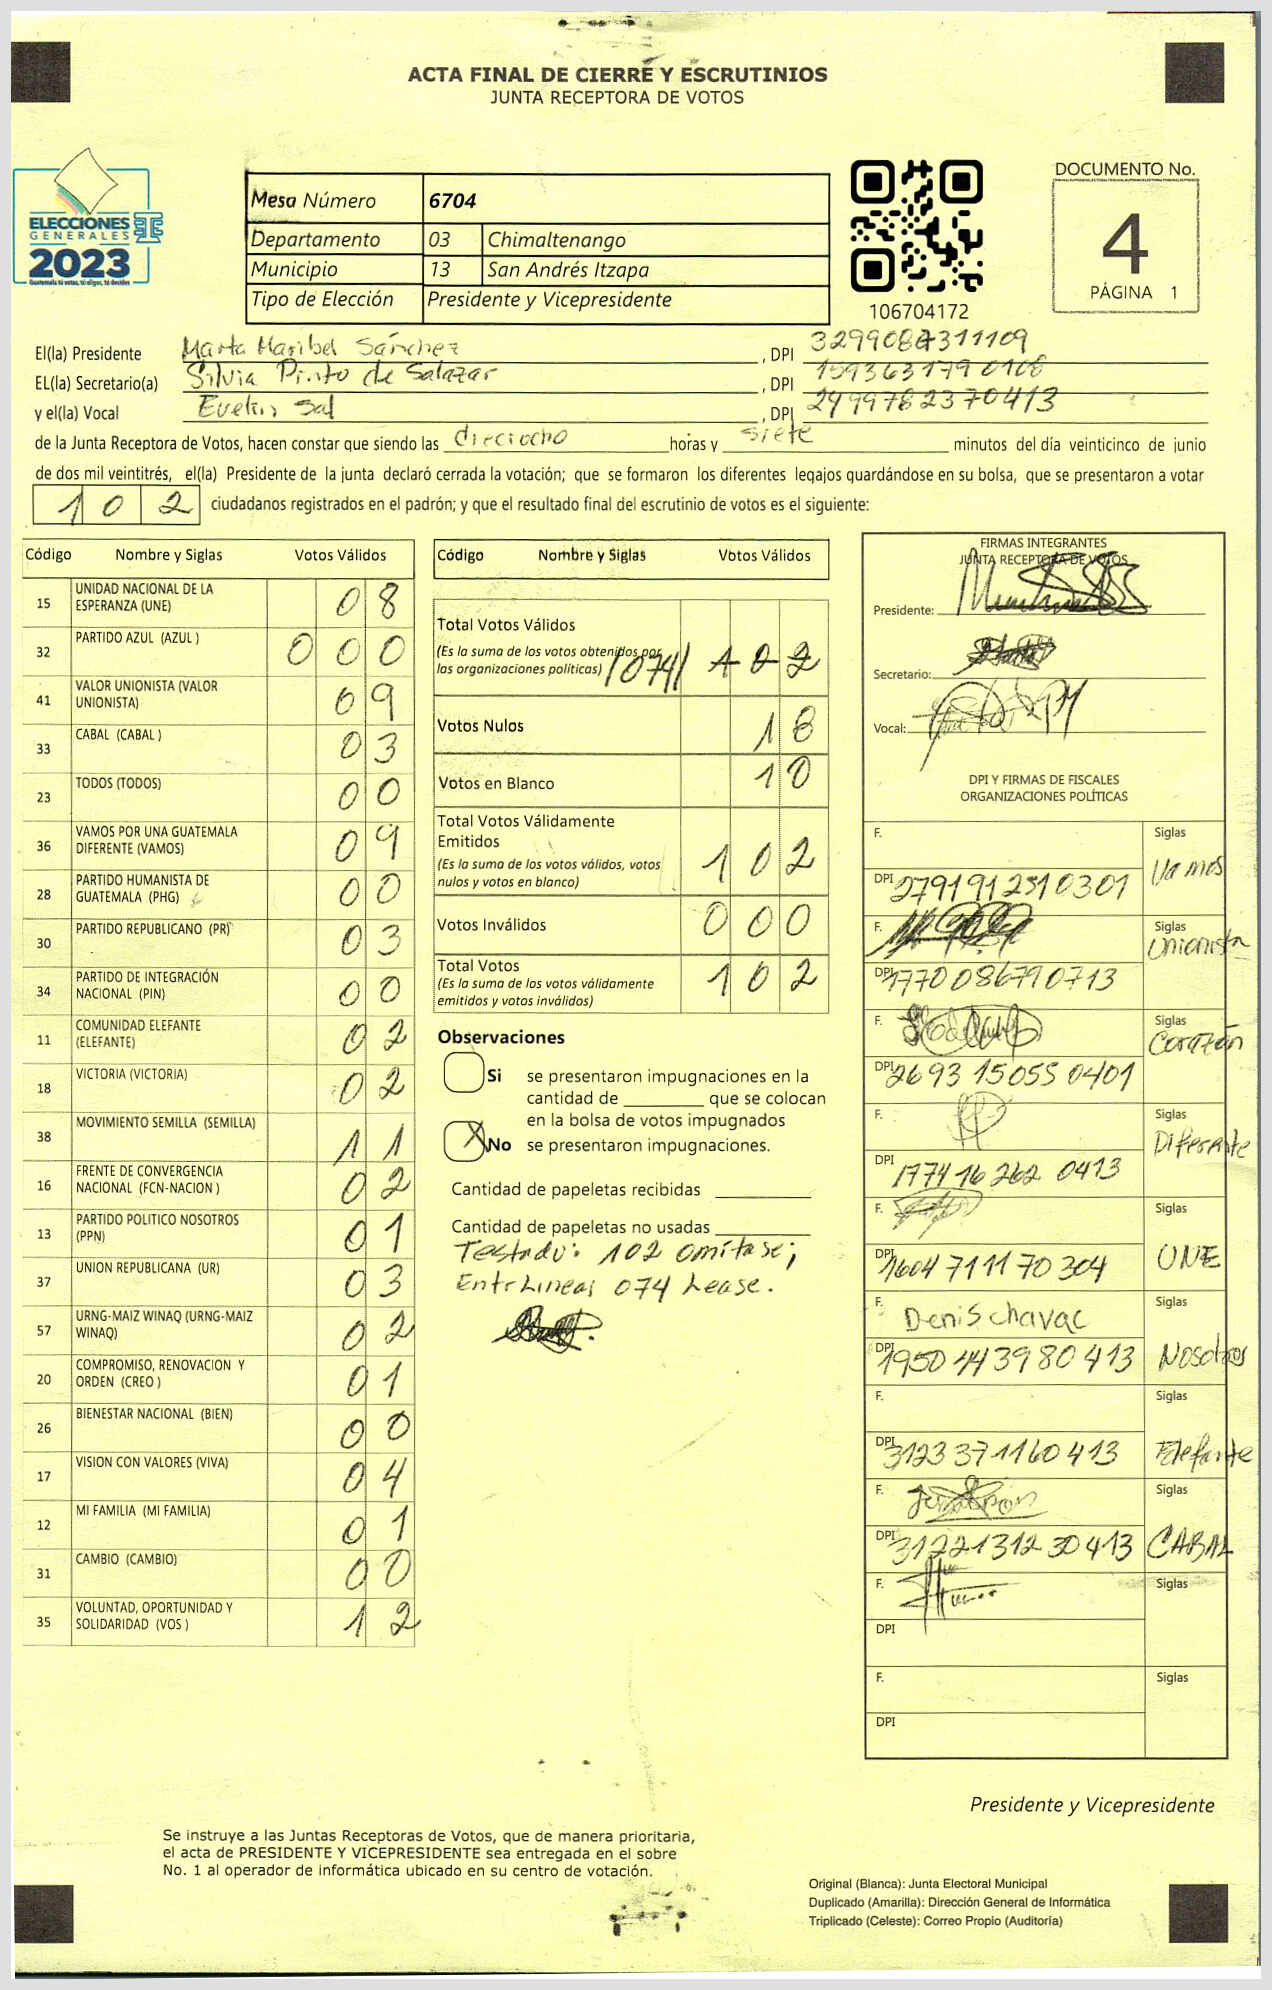 ACTA FINAL DE CIERRE Y ESCRUTINIOS
JUNTA RECEPTORA DE VOTOS
ELECCIONES
GENERALES
2023
Guatemala tú votas, tú eliges, tú decides
Mesa Número 6704
Departamento 03 Chimaltenango
Municipio 13 San Andrés Itzapa
Tipo de Elección Presidente y Vicepresidente
106704172
DOCUMENTO No.
4
PÁGINA 1
El(la) Presidente Marta Maribel Sánchez , DPI
EL(la) Secretario(a) Silvia Pinto de Salazar , DPI 1593631790108
y el(la) Vocal Evelin Sal , DPI 2499782370413
de la Junta Receptora de Votos, hacen constar que siendo las dieciocho horas y siete minutos del día veinticinco de junio
de dos mil veintitrés, el(la) Presidente de la junta declaró cerrada la votación; que se formaron los diferentes legajos guardándose en su bolsa, que se presentaron a votar
102 ciudadanos registrados en el padrón; y que el resultado final del escrutinio de votos es el siguiente:
Código Nombre y Siglas Votos Válidos
15 UNIDAD NACIONAL DE LA ESPERANZA (UNE) 08
32 PARTIDO AZUL (AZUL ) 000
41 VALOR UNIONISTA (VALOR UNIONISTA) 09
33 CABAL (CABAL ) 03
23 TODOS (TODOS) 00
36 VAMOS POR UNA GUATEMALA DIFERENTE (VAMOS) 09
28 PARTIDO HUMANISTA DE GUATEMALA (PHG) 00
30 PARTIDO REPUBLICANO (PR) 03
34 PARTIDO DE INTEGRACIÓN NACIONAL (PIN) 00
11 COMUNIDAD ELEFANTE (ELEFANTE) 02
18 VICTORIA (VICTORIA) 02
38 MOVIMIENTO SEMILLA (SEMILLA) 11
16 FRENTE DE CONVERGENCIA NACIONAL (FCN-NACION ) 02
13 PARTIDO POLITICO NOSOTROS (PPN) 01
37 UNION REPUBLICANA (UR) 03
57 URNG-MAIZ WINAQ (URNG-MAIZ WINAQ) 02
20 COMPROMISO, RENOVACION Y ORDEN (CREO ) 01
26 BIENESTAR NACIONAL (BIEN) 00
17 VISION CON VALORES (VIVA) 04
12 MI FAMILIA (MI FAMILIA) 01
31 CAMBIO (CAMBIO) 00
35 VOLUNTAD, OPORTUNIDAD Y SOLIDARIDAD (VOS ) 12
Código Nombre y Siglas Votos Válidos
Total Votos Válidos
(Es la suma de los votos obtenidos por
las organizaciones políticas) /074/ 102
Votos Nulos 18
Votos en Blanco 10
Total Votos Válidamente
Emitidos
(Es la suma de los votos válidos, votos
nulos y votos en blanco) 102
Votos Inválidos 000
Total Votos
(Es la suma de los votos válidamente
emitidos y votos inválidos) 102
Observaciones
Si se presentaron impugnaciones en la
cantidad de ________ que se colocan
en la bolsa de votos impugnados
X No se presentaron impugnaciones.
Cantidad de papeletas recibidas
Cantidad de papeletas no usadas
Testado: 102 omitase;
Entrlineas 074 Lease.
FIRMAS INTEGRANTES
JUNTA RECEPTORA DE VOTOS
Presidente:
Secretario:
Vocal:
DPI Y FIRMAS DE FISCALES
ORGANIZACIONES POLÍTICAS
F. Siglas Vamos
DPI 2791912510301
F. Siglas Unionista
DPI 1770086790713
F. Siglas Corazón
DPI 2693150550401
F. Siglas Diferente
DPI 1774162620413
F. Siglas UNE
DPI 1604711170304
F. Denis chavac Siglas Nosotros
DPI 1950443980413
F. Siglas Elefante
DPI 3123371160413
F. Siglas CABAL
DPI 3122131230413
F. Siglas
DPI
F. Siglas
DPI
Presidente y Vicepresidente
Se instruye a las Juntas Receptoras de Votos, que de manera prioritaria,
el acta de PRESIDENTE Y VICEPRESIDENTE sea entregada en el sobre
No. 1 al operador de informática ubicado en su centro de votación.
Original (Blanca): Junta Electoral Municipal
Duplicado (Amarilla): Dirección General de Informática
Triplicado (Celeste): Correo Propio (Auditoría)